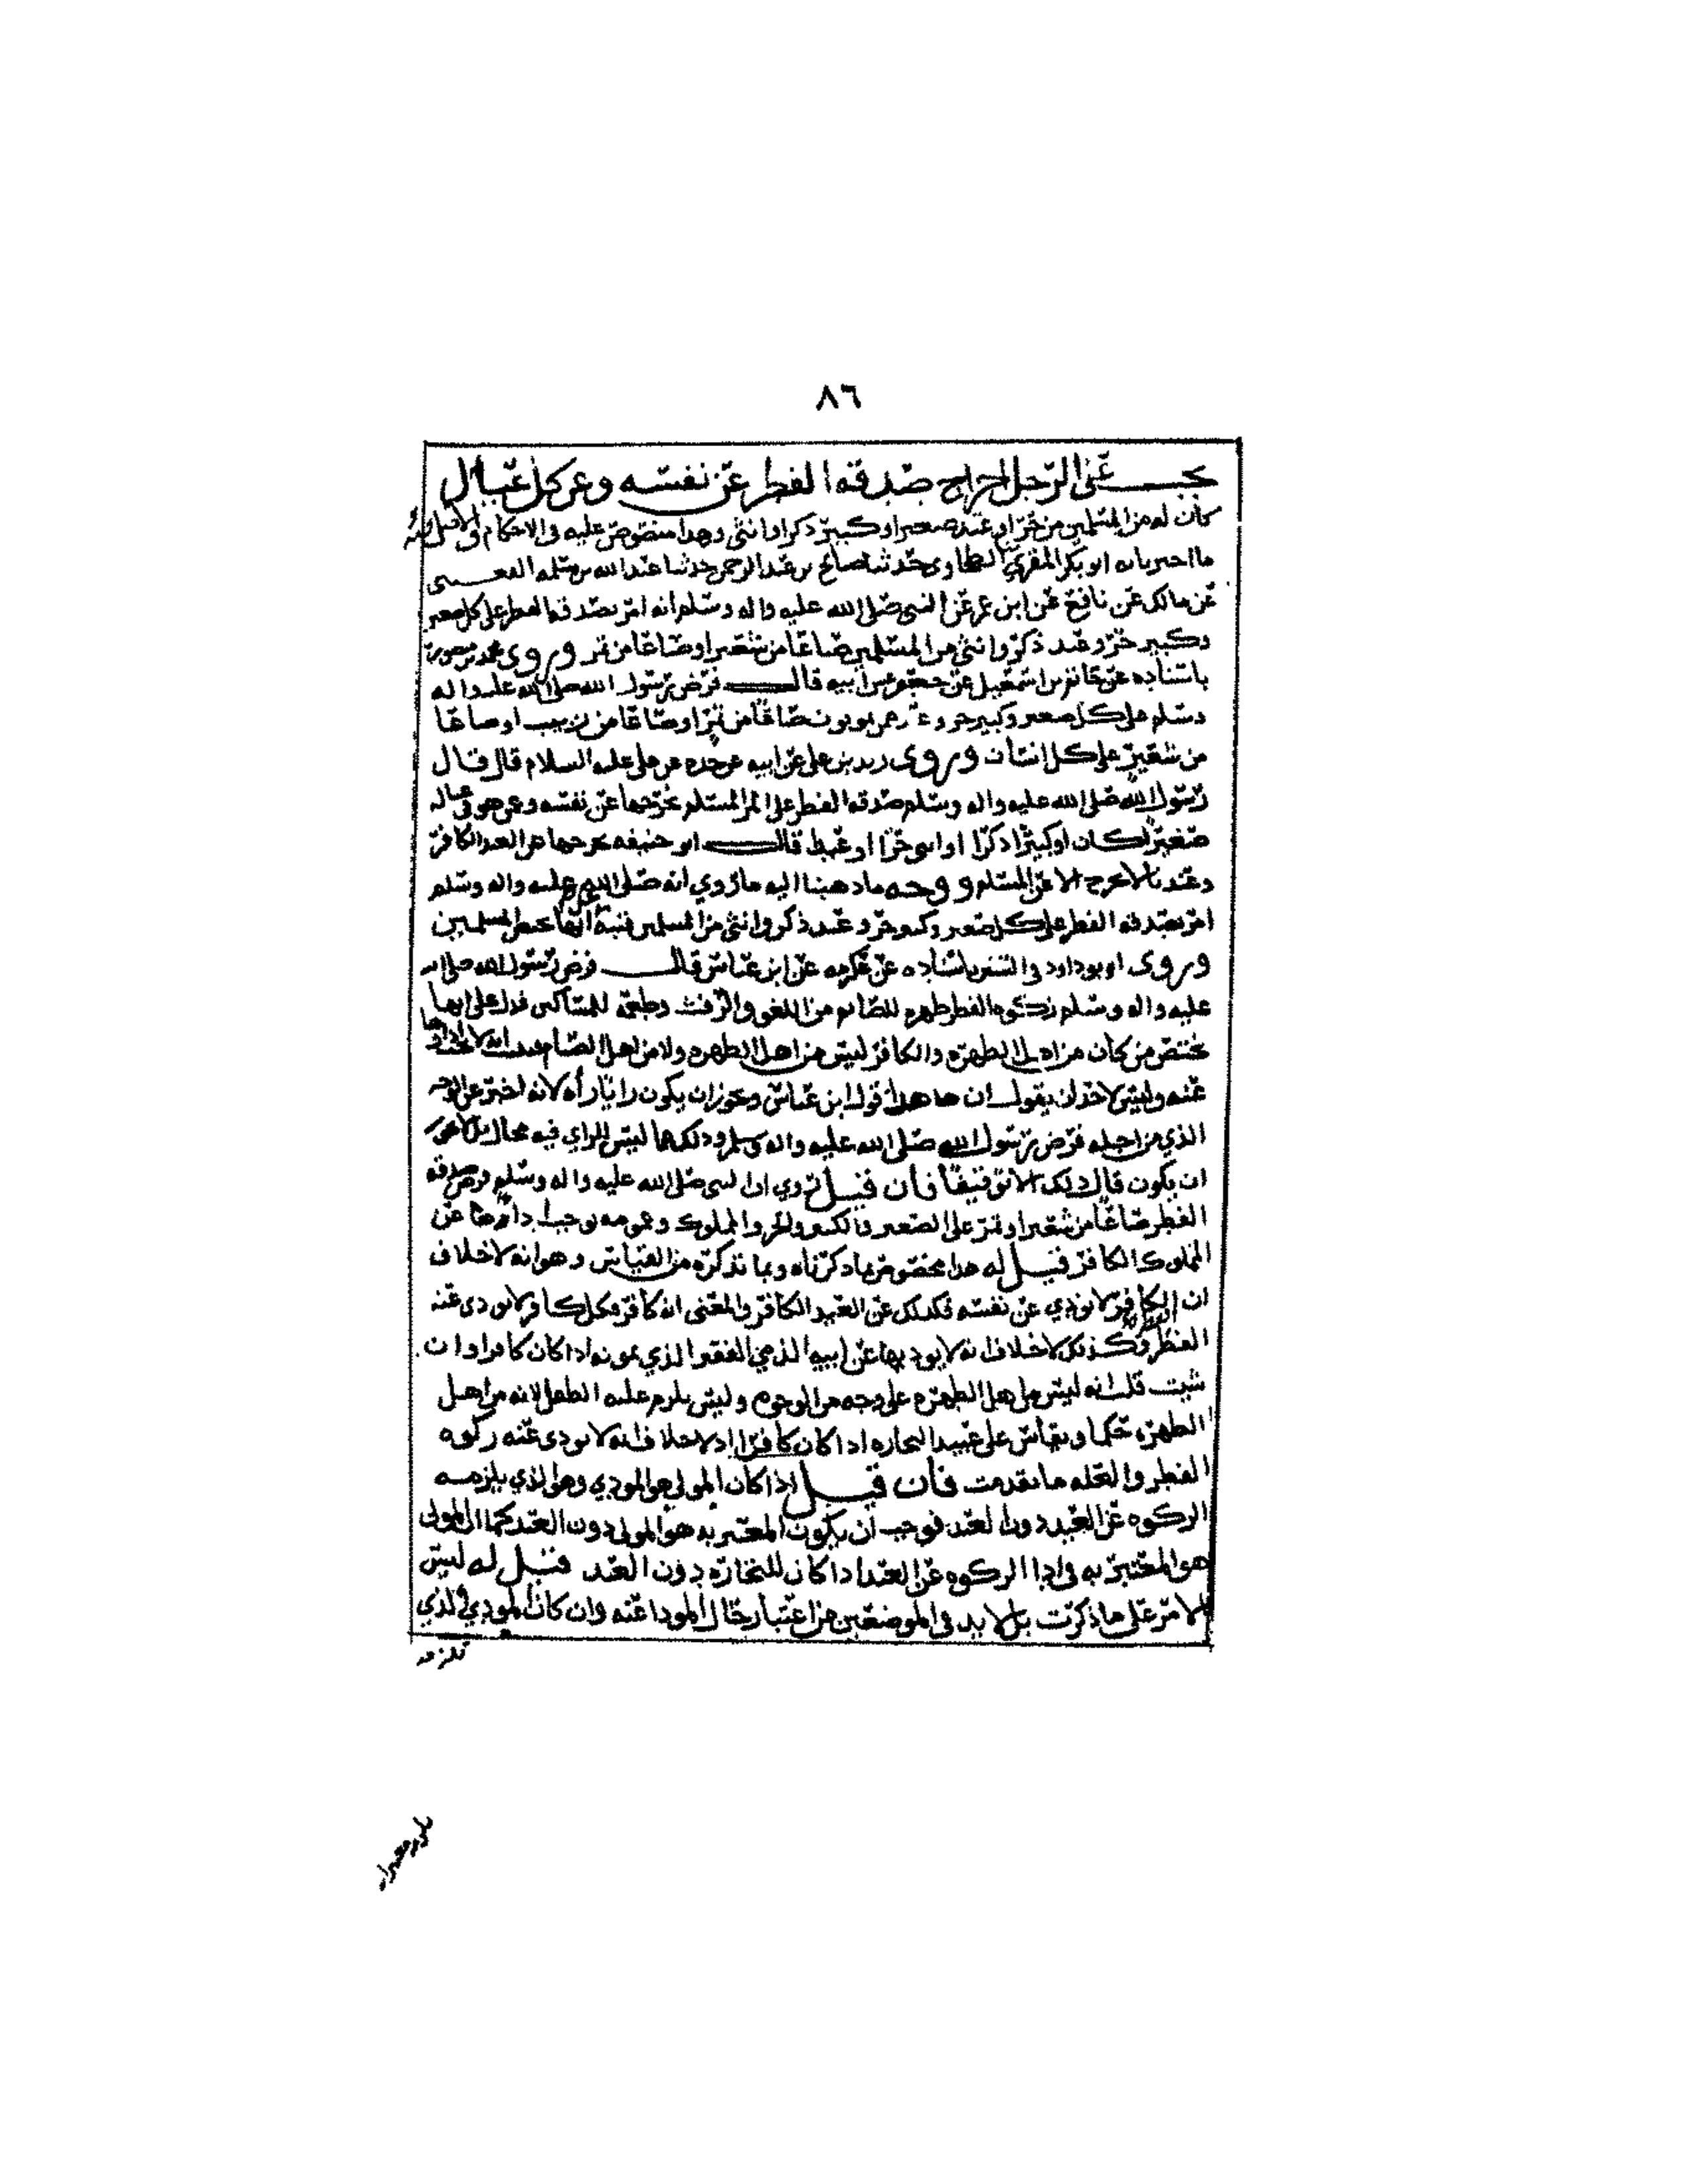 ٨٦
يجب على الرجل اخراج صدقة الفطر عن نفسه وعن كل عيال
كان له من المسلمين من حر او عبد صغير او كبير ذكر او انثى وهذا منصوص عليه في الاحكام والاصل فيه
ما اخبرنا به ابو بكر المقري الطحاوي حدثنا صالح بن عبد الرحمن حدثنا عبد الله بن مسلمه القعنبى
عن مالك عن نافع عن ابن عمر عن النبي صلى الله عليه واله وسلم انه امر بصدقه الفطر على كل صغير
وكبير حر وعبد ذكر وانثى من المسلمين صاعا من شعير او صاعا من تمر وروى محمد بن منصور
باسناده عن حاتم بن اسمعيل عن جعفر عن ابيه قال فرض رسول الله صلى الله عليه واله
وسلم على كل صغير وكبير حر وعبد ممن يمونون صاعا من تمر او صاعا من زبيب او صاعا
من شعير على كل انسان وروى زيد بن على عن ابيه عن جده عن علي عليه السلام قال قال
رسول الله صلى الله عليه واله وسلم صدقه الفطر على المرء المسلم يخرجها عن نفسه وعن من هو في عياله
صغيرا كان او كبيرا ذكرا او انثى حرا او عبدا قال ابو حنيفه يخرجها عن العبد الكافر
وعندنا لا يخرج الا عن المسلم ووجه ما ذهبنا اليه ما روي انه صلى الله عليه واله وسلم
امر بصدقه الفطر على كل صغير وكبير حر وعبد ذكر وانثى من المسلمين فنبه انها تخص المسلمين
وروى ابو داود في السنن باسناده عن عكرمه عن ابن عباس قال فرض رسول الله صلى الله
عليه واله وسلم زكوه الفطر طهره للصائم من اللغو والرفث وطعمة للمساكين فدل على انها
تختص من كان من اهل الطهره والكافر ليس من اهل الطهره ولا من اهل الصيام فثبت انه لا يجب اداوها
عنه وليس لاحد ان يقول ان هذا قول ابن عباس ويجوز ان يكون رايا رأه لانه اخبر عن الوجه
الذي من اجله فرض رسول الله صلى الله عليه واله وسلم وذلك مما ليس للراي فيه مجال فلا يجوز
ان يكون قال ذلك الا توقيفا فان قيل روي ان النبي صلى الله عليه واله وسلم فرض صدقه
الفطر صاعا من شعير او تمر على الصغير والكبير والحر والمملوك وعمومه يوجب اداءها عن
المملوك الكافر قيل له هذا مخصوص بما ذكرناه وبما نذكره من القياس وهو انه لا خلاف
ان الكافر لا يؤدي عن نفسه فكذلك عن العبد الكافر والمعنى انه كافر فكل كافر لا يودى عنه
الفطر وكذلك لا خلاف انه لا يوديها عن ابيه الذمي الفقير الذي يمونه اذا كان كافرا وان
شيت قلت انه ليس من اهل الطهره على وجه من الوجوه وليس يلزم عليه الطفل لانه من اهل
الطهره حكما ويقاس على عبيد التجاره اذا كان كافرا اذ لا خلاف انه لا يودى عنه زكوه
الفطر والعله ما تقدمت فان قيل اذا كان المولى هو المودي وهو الذي يلزمه
الزكوه عن العبد دون العبد فوجب ان يكون المعتبر به هو المولى دون العبد كما ان المولى
هو المعتبر به في اداء الزكوه عن العبد اذا كان للتجاره دون العبد قيل له ليس
الامر على ما ذكرت بل لا بد في الموضعين من اعتبار حال المودا عنه وان كان المودي الذي
تلزمه